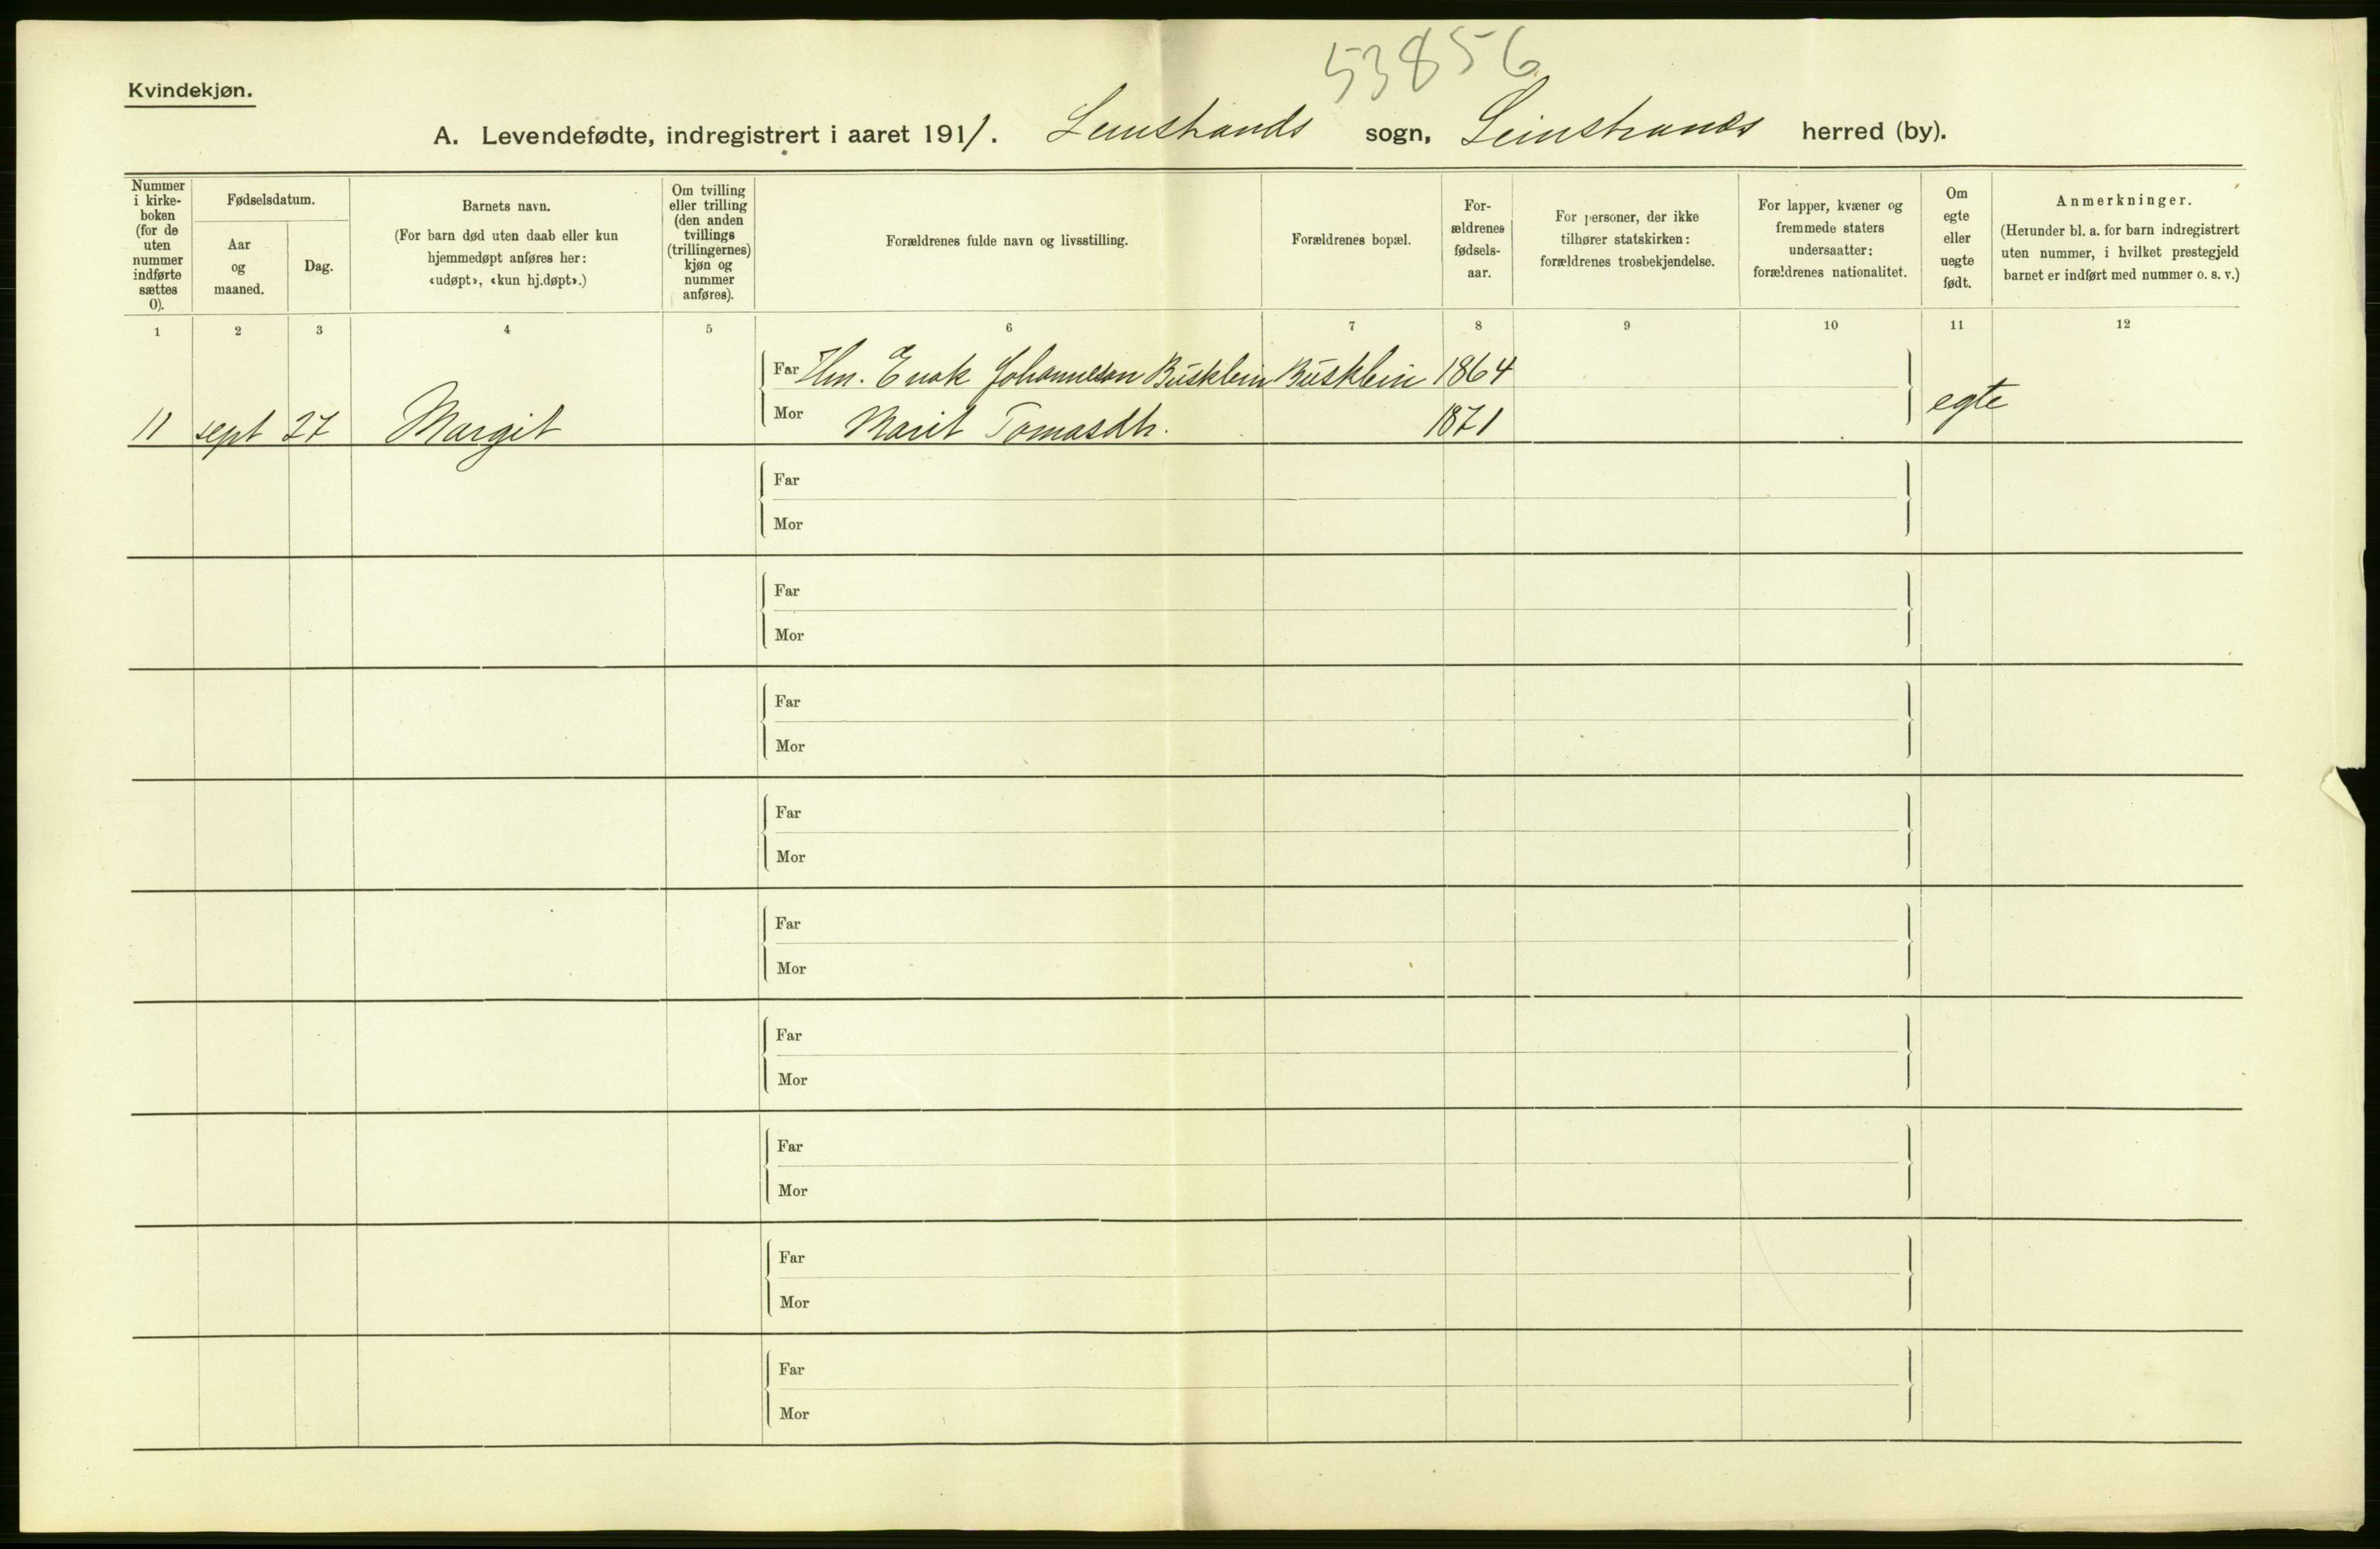 53856
Kvindekjøn.
A. Levendefødte, indregistrert i aaret 1911. Leinstrands sogn, Leinstrands herred (by).
Nummer i kirke- boken (for de uten nummer indførte sættes 0).
Fødselsdatum.
Aar og maaned.
Dag.
Barnets navn.
(For barn død uten daab eller kun hjemmedøpt anføres her: «udøpt», «kun hj.døpt».)
Om tvilling eller trilling (den anden tvillings (trillingernes) kjøn og nummer anføres).
Forældrenes fulde navn og livsstilling.
Forældrenes bopæl.
For- ældrenes fødsels- aar.
For personer, der ikke tilhører statskirken: forældrenes trosbekjendelse.
For lapper, kvæner og fremmede staters undersaatter: forældrenes nationalitet.
Om egte eller uegte født.
Anmerkninger.
(Herunder bl. a. for barn indregistrert uten nummer, i hvilket prestegjeld barnet er indført med nummer o. s. v.)
1 2 3 4 5 6 7 8 9 10 11 12
Far Hm. Enok Johannesen Busklein Busklein 1864
11 sept 27 Margit Mor Marit Tomasdtr. 1871 egte
Far
Mor
Far
Mor
Far
Mor
Far
Mor
Far
Mor
Far
Mor
Far
Mor
Far
Mor
Far
Mor